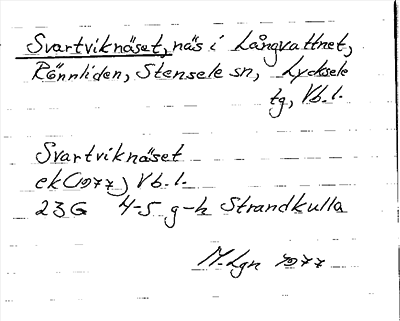 Svartviknäset, näs i Långvattnet,
Rönnliden, Stensele sn, Lycksele
tg, Vb. l.
Svartviknäset
ek (1977) Vb. l.
23G 4-5 g-h Strandkulla
M. Lgn 1977